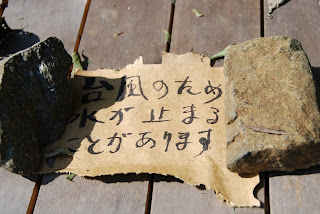 台風のため
水が止まる
ことがあります